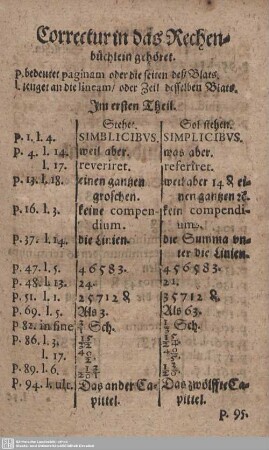 Correctur in das Rechen-
büchlein gehöret.
p. bedeutet paginam oder die seiten deß Blats
l. zeuget an die lineam / oder Zeil desselben Blats.
Im ersten Theil.
Stehet. Sol stehen.
p. 1. l. 4. SIMBLICIBVS. SIMPLICIBVS.
p. 4. l. 14. weil aber. was aber.
l. 17. reveriret. referiret.
p. 13. l. 18. einen gantzen weil aber 14 & ei-
groschen. nen gantzen
p. 16. l. 3. keine compen- kein compendi-
dium. um.
p. 37. l. 14. die Linien. die Summa vn-
ter die Linien.
p. 47. l. 5. 46583. 456583.
p. 48. l. 13. 24. 21.
p. 51. l. 1. 25712 & 35712 &.
p. 69. l. 5. Als 3. Als 63.
p 82. in fine Sch. Sch.
p. 86. l. 3.
l. 17.
p. 89. l. 6.
p. 94. l. ult. Das ander Ca- Das zwölffte Ca-
pittel. pittel.
p. 95.